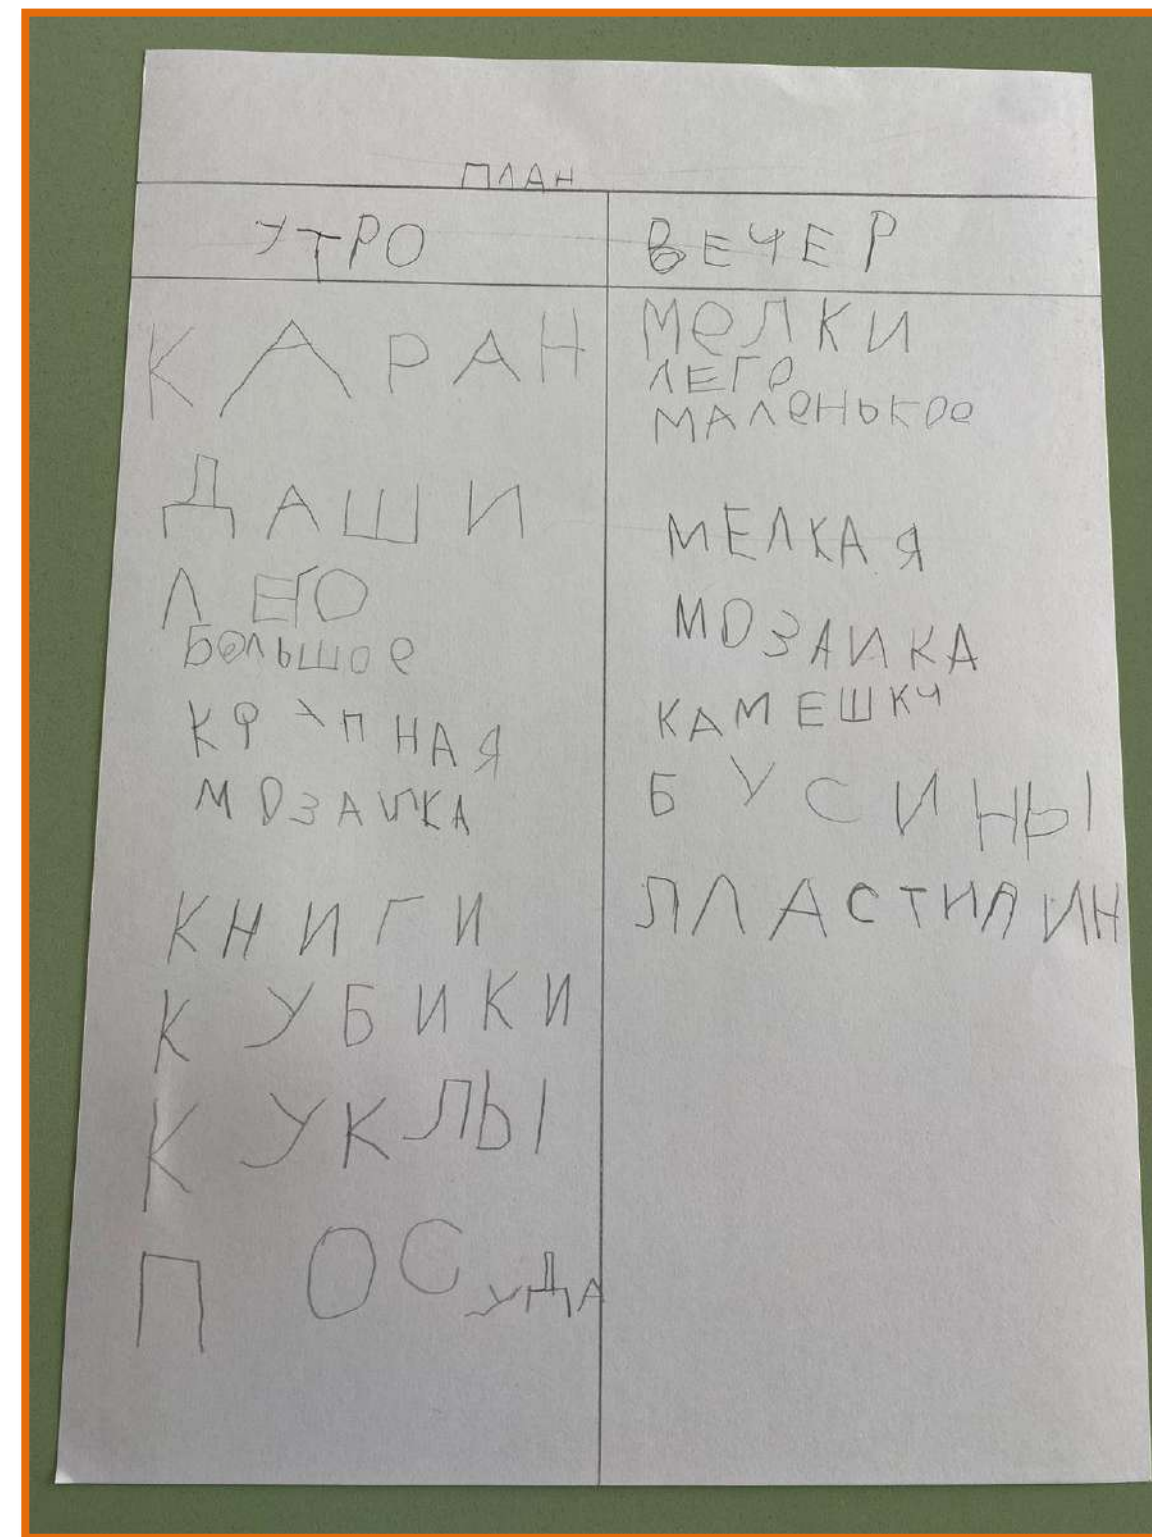 ПЛАН
УТРО
КАРАН
ДАШИ
ЛЕГО
БОЛЬШОе
КРУПНАЯ
МОЗАИКА
КНИГИ
КУБИКИ
КУКЛЫ
ПОСУДА
ВЕЧЕР
МеЛКИ
ЛЕГО
МАЛеНЬКОе
МЕЛКАЯ
МОЗАИКА
КАМЕШКИ
БУСИНЫ
ПЛАСТИЛИН